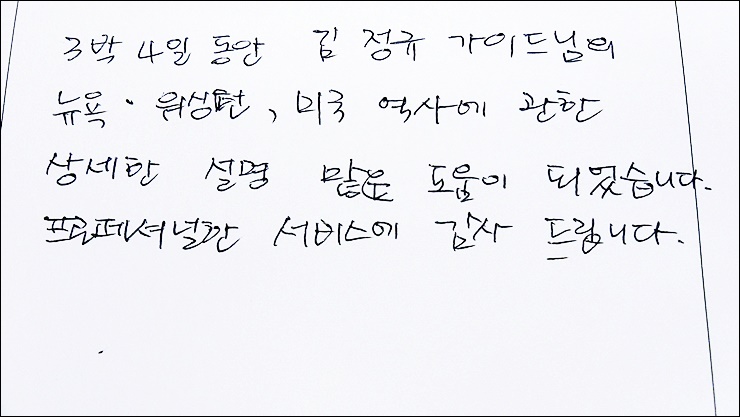 3박 4일 동안 김 정규 가이드님의
뉴욕 · 워싱턴, 미국 역사에 관한
상세한 설명 많은 도움이 되었습니다.
프로페셔널한 서비스에 감사 드립니다.